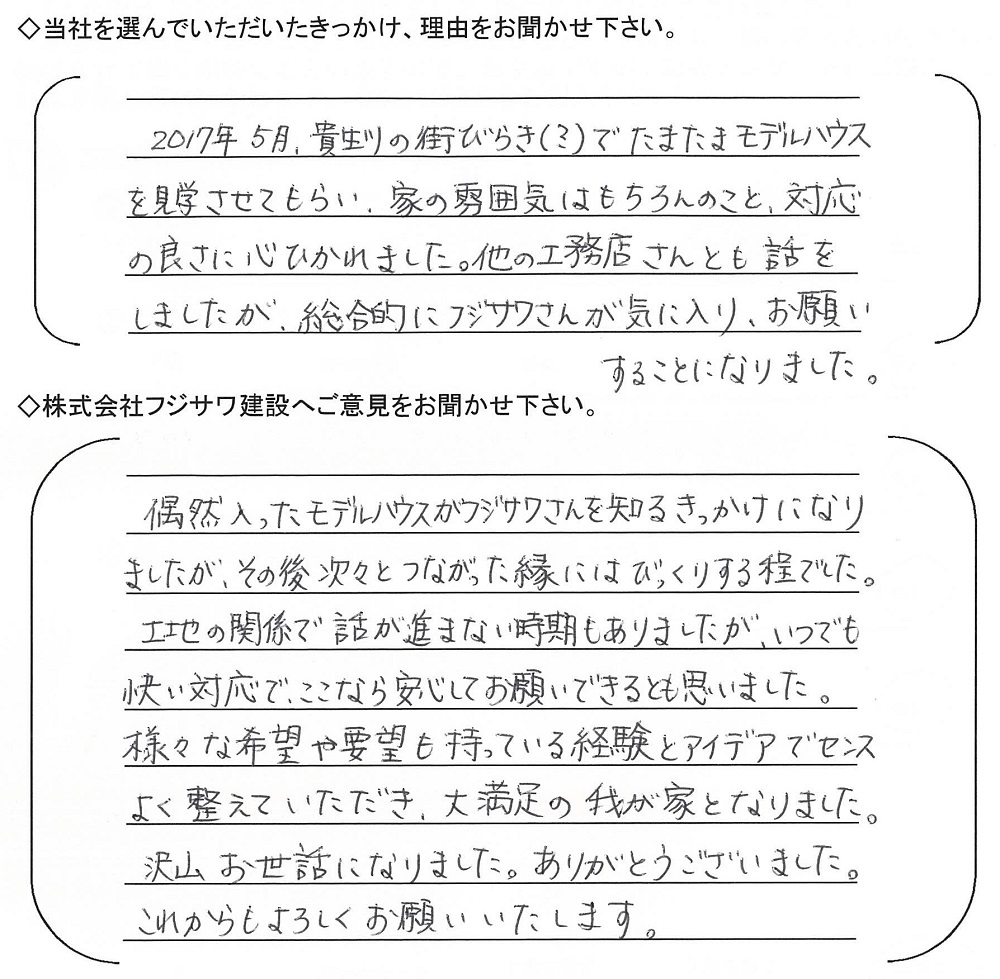 ◇当社を選んでいただいたきっかけ、理由をお聞かせ下さい。
2017年5月、貴生川の街びらき(ミ)でたまたまモデルハウス
を見学させてもらい、家の雰囲気はもちろんのこと、対応
の良さに心ひかれました。他の工務店さんとも話を
しましたが、総合的にフジサワさんが気に入り、お願い
することになりました。
◇株式会社フジサワ建設へご意見をお聞かせ下さい。
偶然入ったモデルハウスがフジサワさんを知るきっかけになり
ましたが、その後次々とつながった縁にはびっくりする程でした。
土地の関係で話が進まない時期もありましたが、いつでも
快い対応で、ここなら安心してお願いできるとも思いました。
様々な希望や要望も持っている経験とアイデアでセンス
よく整えていただき、大満足の我が家となりました。
沢山お世話になりました。ありがとうございました。
これからもよろしくお願いいたします。